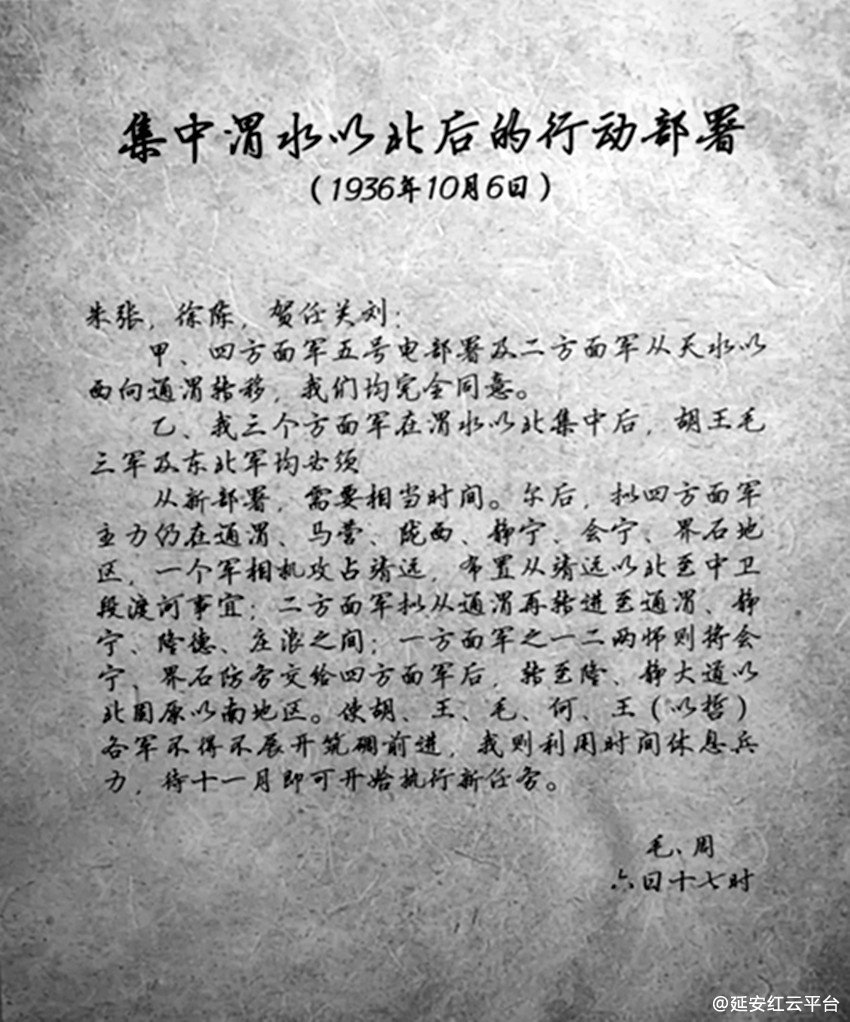 集中渭水以北后的行动部署
（1936年10月6日）
朱张，徐陈，贺任关刘：
甲、四方面军五号电部署及二方面军从天水以
西向通渭转移，我们均完全同意。
乙、我三个方面军在渭水以北集中后，胡王毛
三军及东北军均必须
从新部署，需要相当时间。尔后，拟四方面军
主力仍在通渭、马营、陇西、静宁、会宁、界石地
区，一个军相机攻占靖远，布置从靖远以北至中卫
段渡河事宜；二方面军拟从通渭再转进至通渭、静
宁、隆德、庄浪之间；一方面军之一二两师则将会
宁、界石防务交给四方面军后，转至隆、静大道以
北固原以南地区。使胡、王、毛、何、王（以哲）
各军不得不展开筑碉前进，我则利用时间休息兵
力，待十一月即可开始执行新任务。
毛、周
六日十七时
@延安红云平台